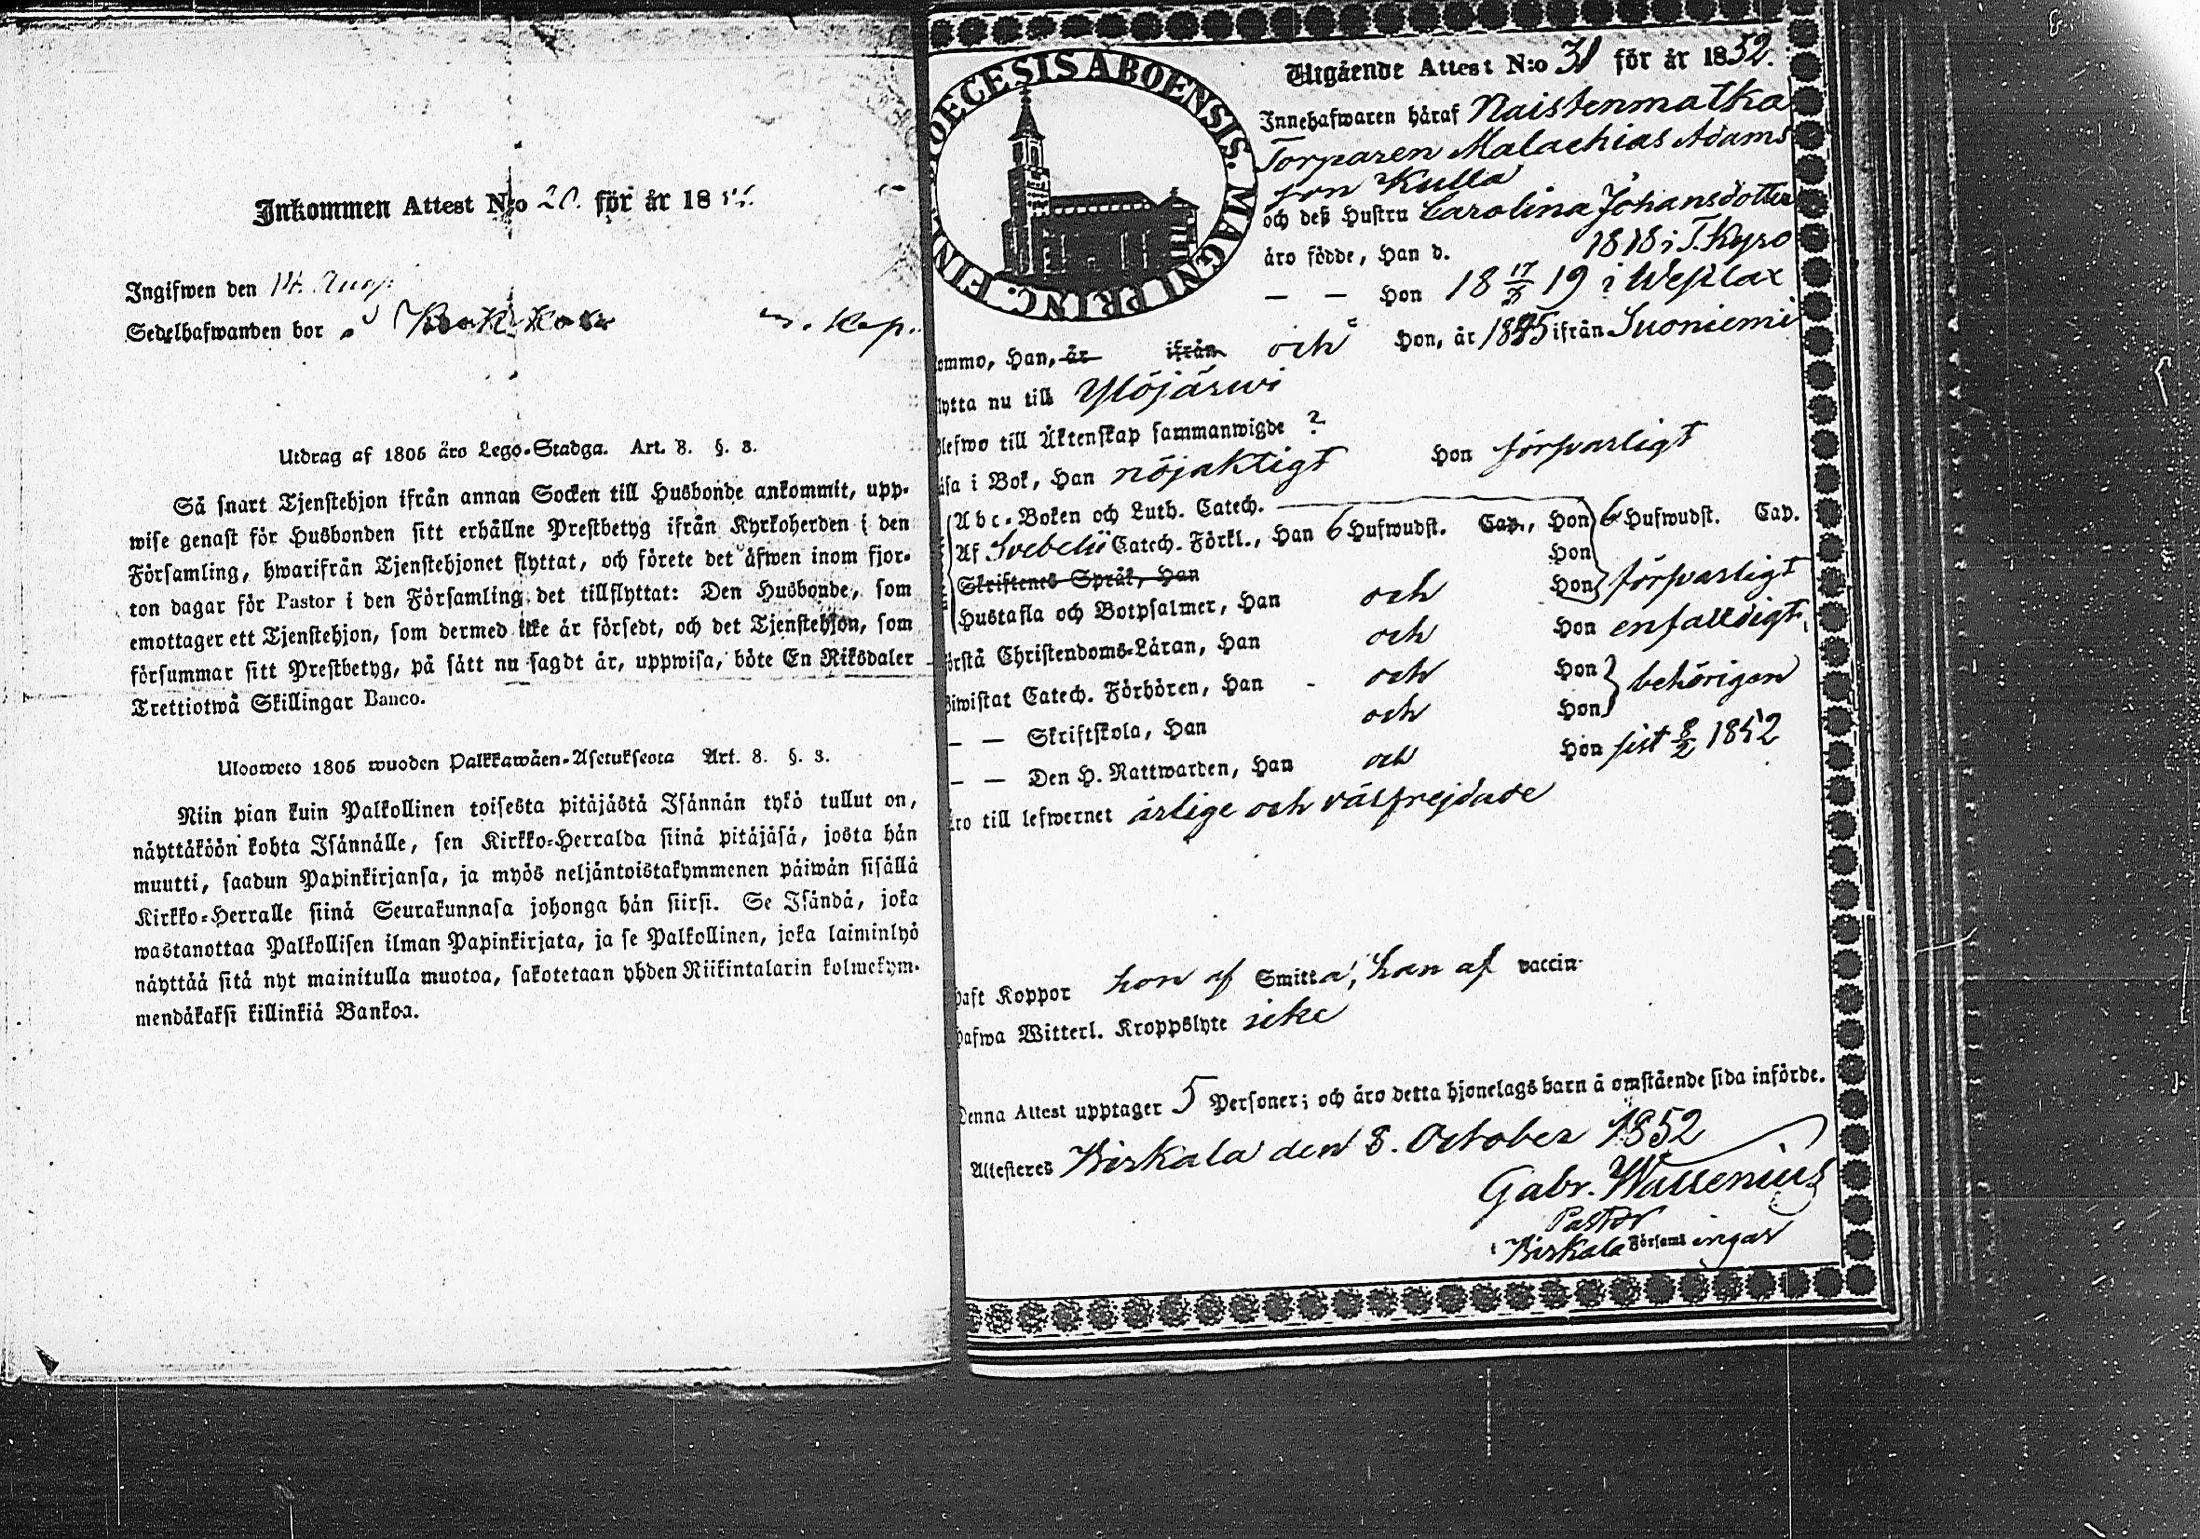 Inkommen Attest N:o 20. för år 18
Ingifwen den 14.
Sedelhafwanden bor
Utdrag af 1805 åro Lego-Stadga. Art. 8. §. 3.
Så snart Tjenstehjon ifrån annan Socken till Husbonde ankommit, upp-
wise genast för Husbonden sitt erhållne Prestbetyg ifrån Kyrkoherden i den
Församling, hwarifrån Tjenstehjonet flyttat, och förete det äfwen inom fjor-
ton dagar för Pastor i den Församling det tillflyttat: Den Husbonde, som
emottager ett Tjenstehjon, som dermed icke är försedt, och det Tjenstehjon, som
försummar sitt Prestbetyg, på sätt nu sagdt är, uppwisa, böte En Riksdaler
Trettiotwå Skillingar Banco.
Uloosweto 1805 wuoden Palkkawäen-Asetuksesta Art. 8. §. 3.
Niin pian kuin Palkollinen toisesta pitäjästä Isännän tykö tullut on,
näyttäköön kohta Isännälle, sen Kirkko-Herralda siinä pitäjäsä, josta hän
muutti, saadun Papinkirjansa, ja myös neljäntoistakymmenen päiwän sisällä
Kirkko-Herralle siinä Seurakunnasa johonga hän siirsi. Se Isändä, joka
wastanottaa Palkollisen ilman Papinkirjata, ja se Palkollinen, joka laiminlyö
näyttää sitä nyt mainitulla muotoa, sakotetaan yhden Riikintalarin kolmekym-
mendäkaksi killinkiä Bankoa.
DIOECESIS ABOENSIS. MAGNI PRINC. FINL.
Utgående Attest N:o 31 för år 1852.
Innehafwaren häraf Naistenmatka
Torparen Malachias Adams
son Kulla
och deß Hustru Carolina Johansdotter
äro födde, Han d. 1818 i T.Kyro
— — Hon 18 17/3 19 i Wesilax
ommo, Han, år ifrån och Hon, år 1845 ifrån Suoniemi
lytta nu till Ylöjärwi
Blefwo till Äktenskap sammanwigde ?
äsa i Bok, Han nöjaktigt Hon försvarligt
Abc-Boken och Luth. Catech.
Af Svebelii Catech. Förkl., Han 6 Hufwudst. Cap., Hon 6 Hufwudst. Cap.
Hon
Skriftenes Språk, Han
Hustafla och Botpsalmer, Han och Hon försvarligt
örstå Christendoms-Läran, Han och Hon enfalldigt,
Biwistat Catech. Förhören, Han och Hon behörigen
— — Skriftskola, Han och Hon
— — Den H. Nattwarden, Han och Hon sist 8/2 1852
Äro till lefwernet ärlige och välfrejdade
haft Koppor hon af Smitta, han af vaccin
hafwa Witterl. Kroppslyte icke
Denna Attest upptager 5 Personer; och äro detta hjonelags barn å omstående sida införde.
Attesteres Birkala den 8. October 1852
Gabr. Wallenius
Pastor
i Birkala Församlingar